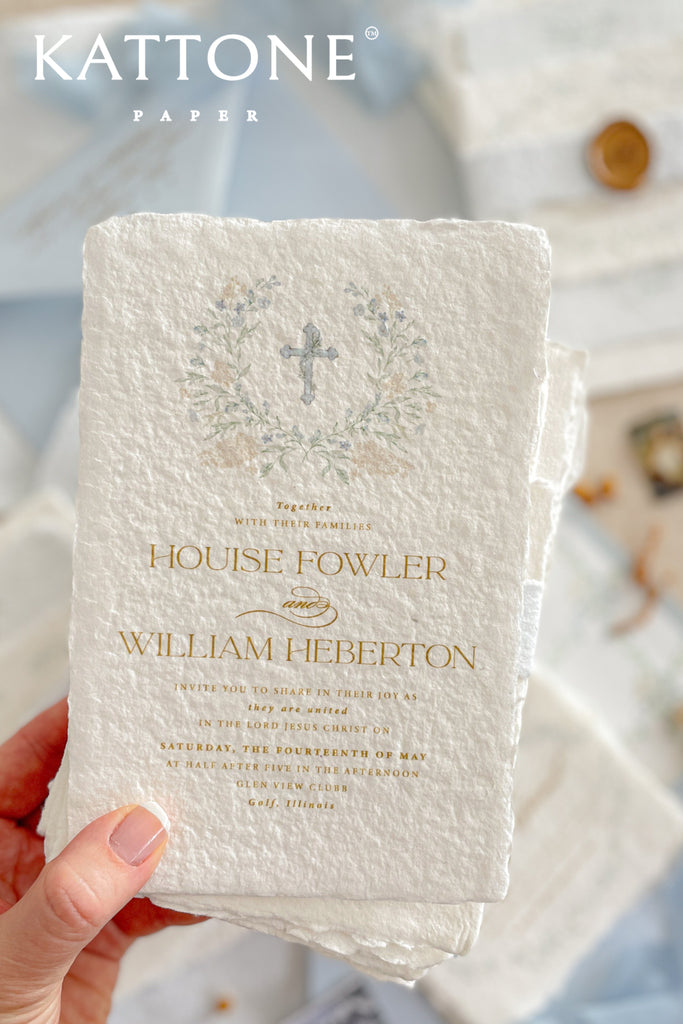 KATTONE™
PAPER
Together
WITH THEIR FAMILIES
HOUISE FOWLER
and
WILLIAM HEBERTON
INVITE YOU TO SHARE IN THEIR JOY AS
they are united
IN THE LORD JESUS CHRIST ON
SATURDAY, THE FOURTEENTH OF MAY
AT HALF AFTER FIVE IN THE AFTERNOON
GLEN VIEW CLUBB
Golf, Illinois